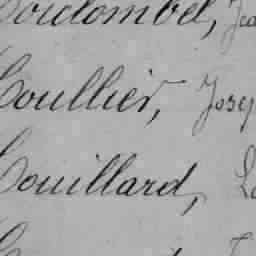 Coulombel, Jea
Coullier, Josep
Couillard, Lo